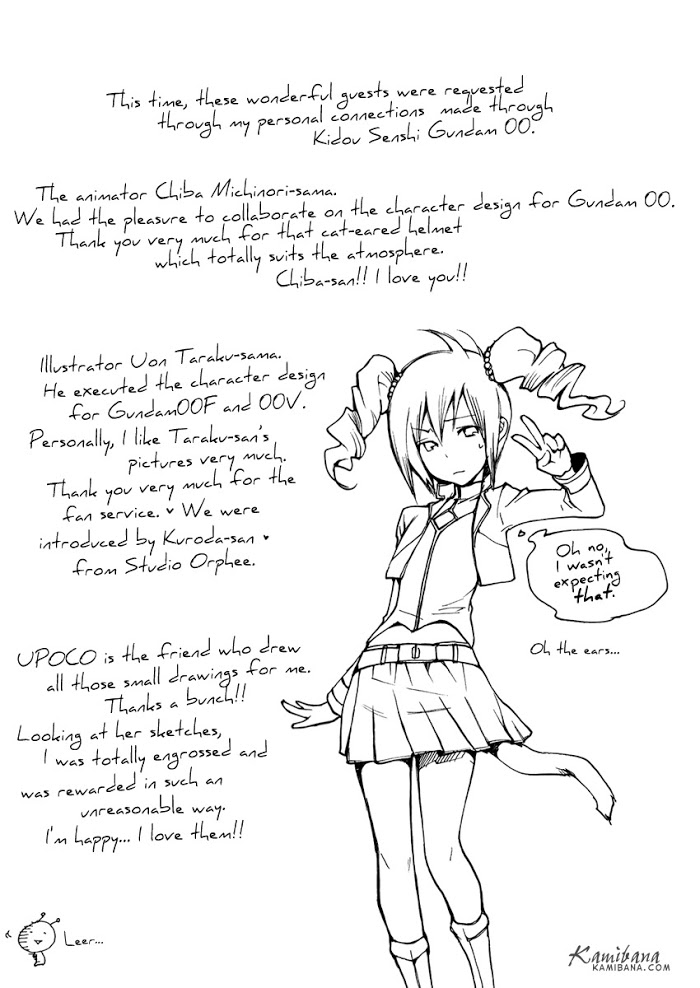 This time, these wonderful guests were requested
through my personal connections made through
Kidou Senshi Gundam OO.
The animator Chiba Michinori-sama.
We had the pleasure to collaborate on the character design for Gundam OO.
Thank you very much for that cat-eared helmet
which totally suits the atmosphere.
Chiba-san!! I love you!!
Illustrator Uon Taraku-sama.
He executed the character design
for GundamOOF and OOV.
Personally, I like Taraku-san's
pictures very much.
Thank you very much for the
fan service. ♥ We were
introduced by Kuroda-san ♥
from Studio Orphee.
Oh no,
I wasn't
expecting
that.
Oh the ears...
UPOCO is the friend who drew
all those small drawings for me.
Thanks a bunch!!
Looking at her sketches,
I was totally engrossed and
was rewarded in such an
unreasonable way.
I'm happy... I love them!!
Leer...
Kamibana
KAMIBANA.COM